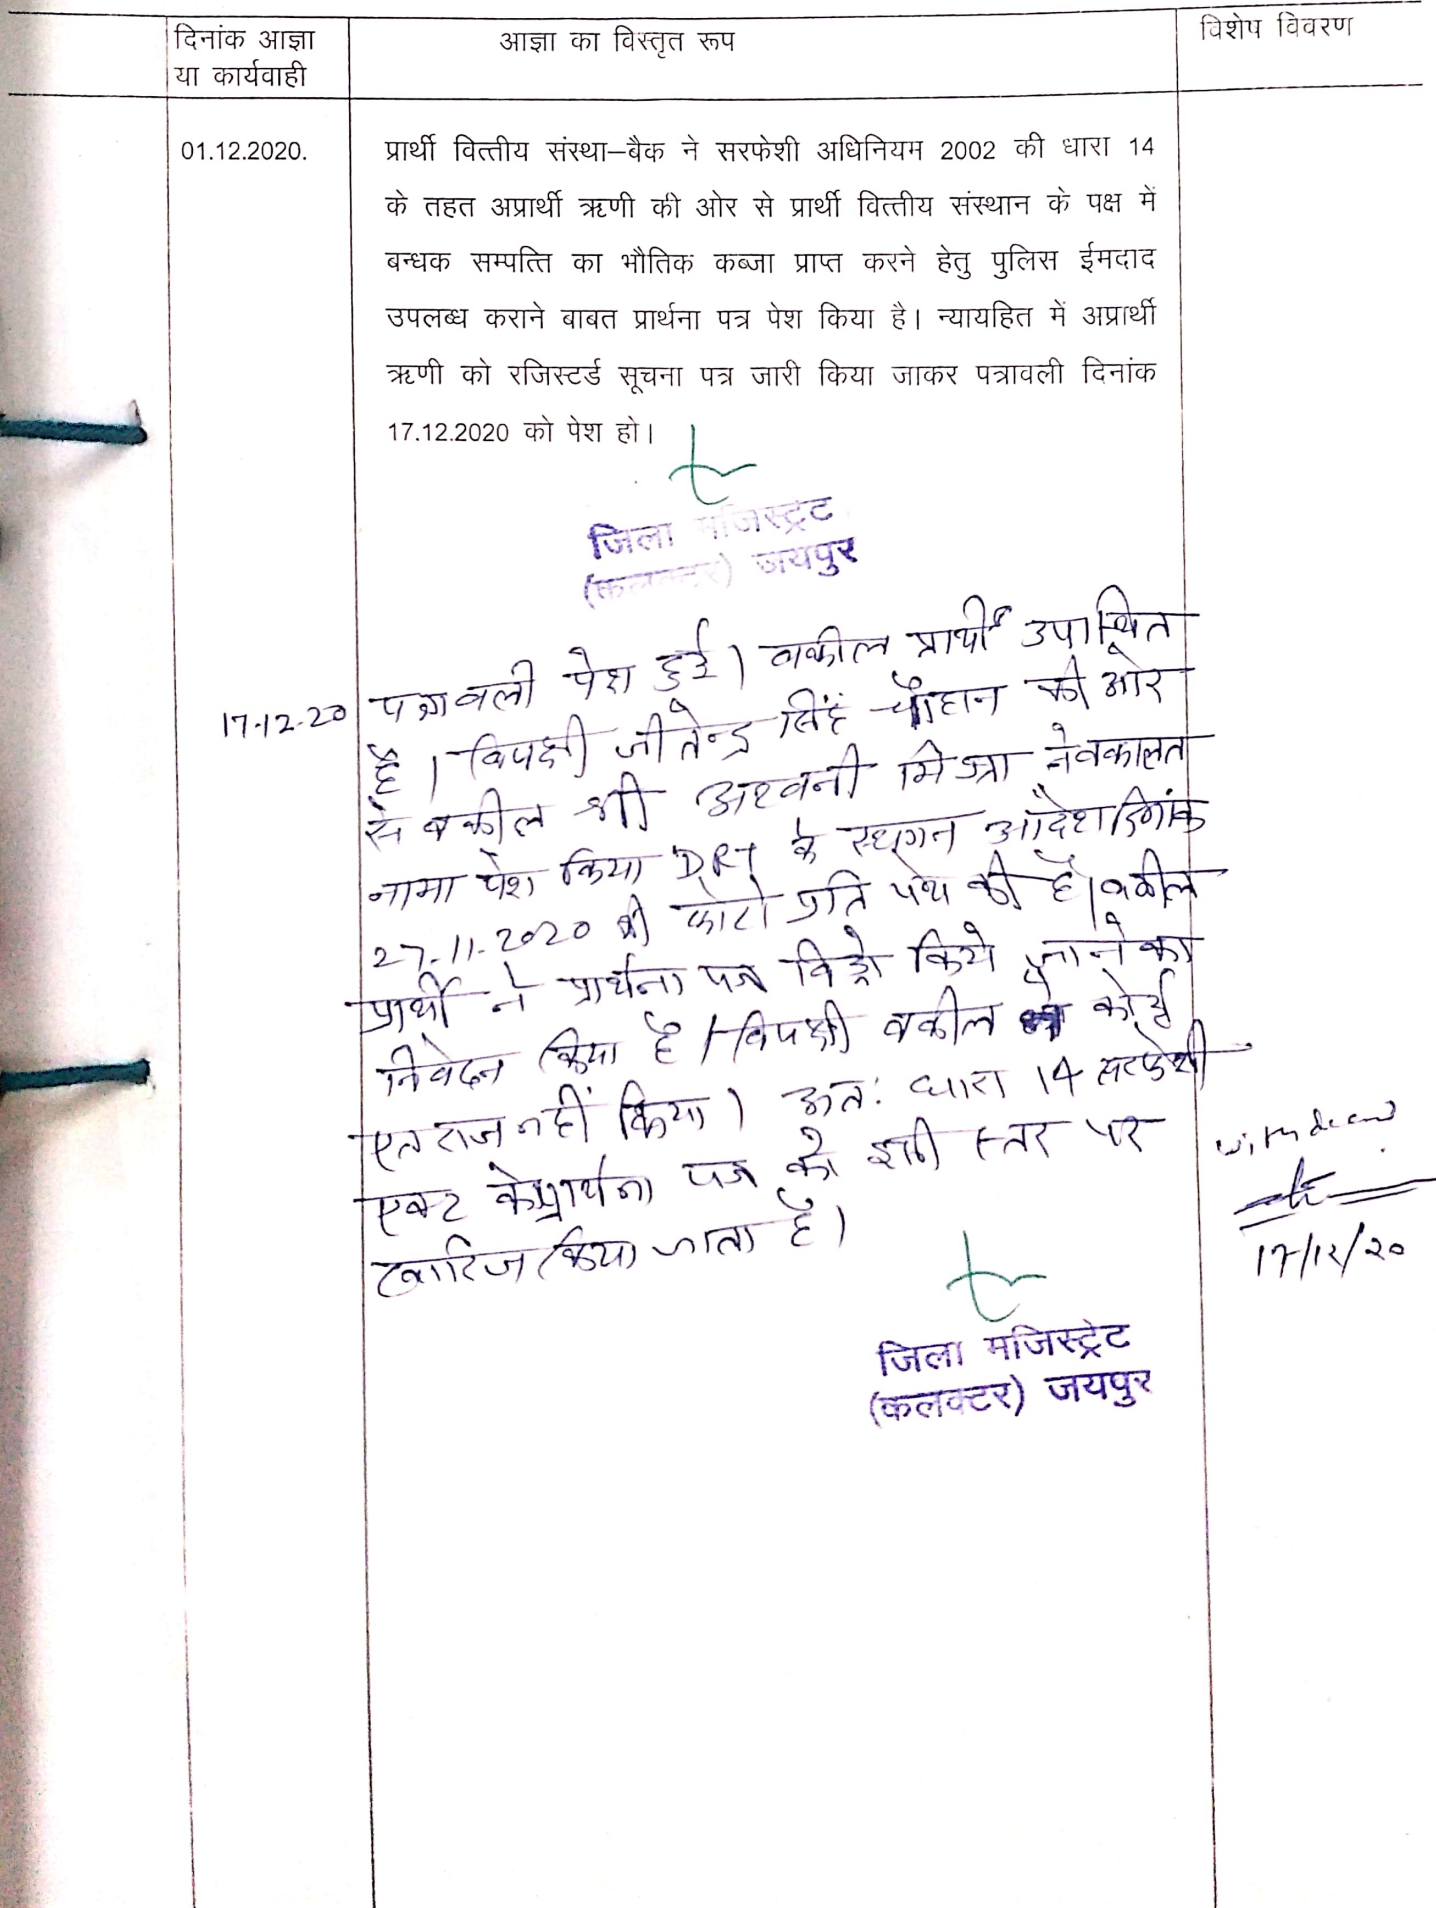 दिनांक आज्ञा
या कार्यवाही
आज्ञा का विस्तृत रूप
विशेष विवरण
01.12.2020.
प्रार्थी वित्तीय संस्था–बैक ने सरफेशी अधिनियम 2002 की धारा 14
के तहत अप्रार्थी ऋणी की ओर से प्रार्थी वित्तीय संस्थान के पक्ष में
बन्धक सम्पत्ति का भौतिक कब्जा प्राप्त करने हेतु पुलिस ईमदाद
उपलब्ध कराने बाबत प्रार्थना पत्र पेश किया है। न्यायहित में अप्रार्थी
ऋणी को रजिस्टर्ड सूचना पत्र जारी किया जाकर पत्रावली दिनांक
17.12.2020 को पेश हो।
जिला मजिस्ट्रेट
(कलक्टर) जयपुर
17-12-20
पत्रावली पेश हुई। वकील प्रार्थी उपस्थित
है। विपक्षी जीतेन्द्र सिंह चौहान की ओर
से वकील श्री अश्वनी मिश्रा ने वकालत
नामा पेश किया DRT के स्थगन आदेश दिनांक
27-11-2020 की फोटो प्रति पेश की है। वकील
प्रार्थी ने प्रार्थना पत्र विड्रो किये जाने का
निवेदन किया है। विपक्षी वकील ने कोई
एतराज नहीं किया। अतः धारा 14 सरफेशी
एक्ट के प्रार्थना पत्र को इसी स्तर पर
खारिज किया जाता है।
17/12/20
जिला मजिस्ट्रेट
(कलक्टर) जयपुर